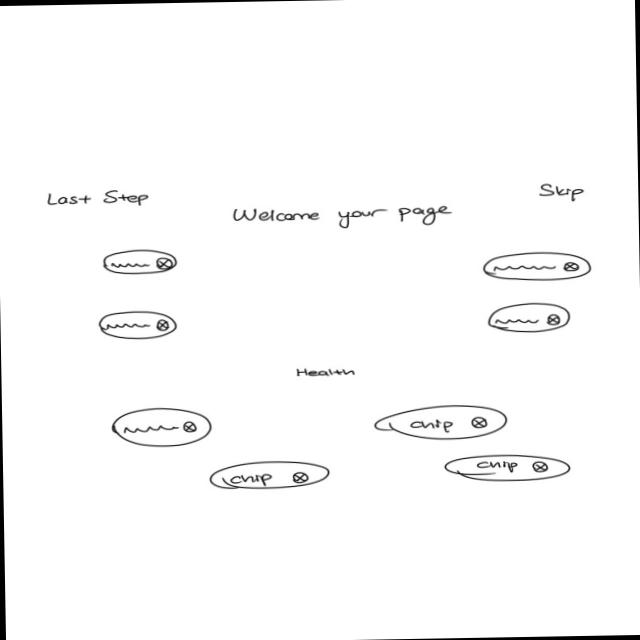 Last Step
Skip
Welcome your page
Health
chip
chip
chip